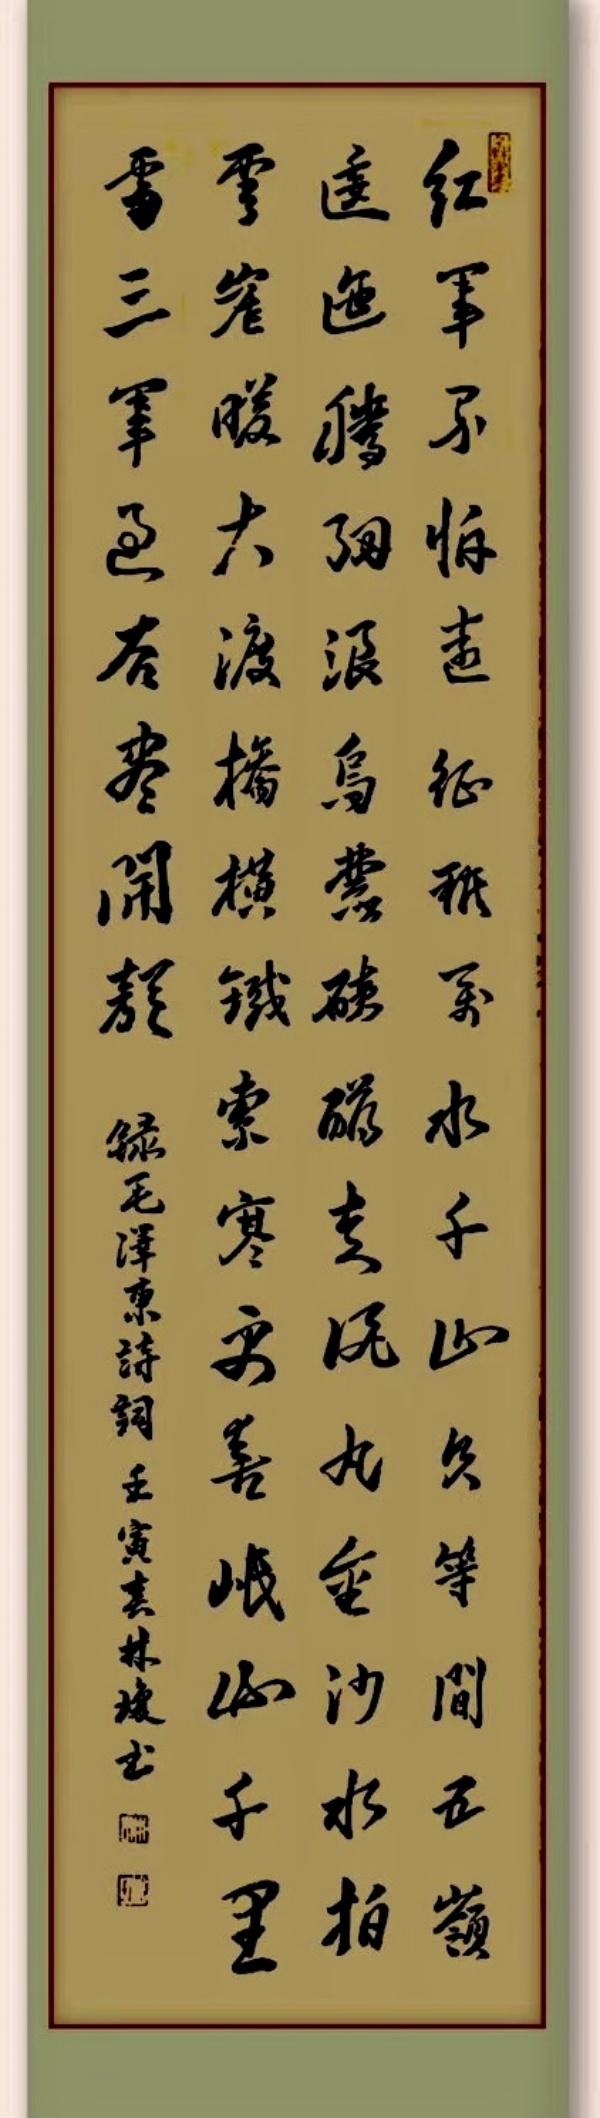 红軍不怕遠征難萬水千山只等間五嶺
逶迤騰細浪烏蒙磅礴走泥丸金沙水拍
雲崖暖大渡橋横鐵索寒更喜岷山千里
雪三軍過后盡開顏 録毛澤東詩詞 壬寅春林瓊书